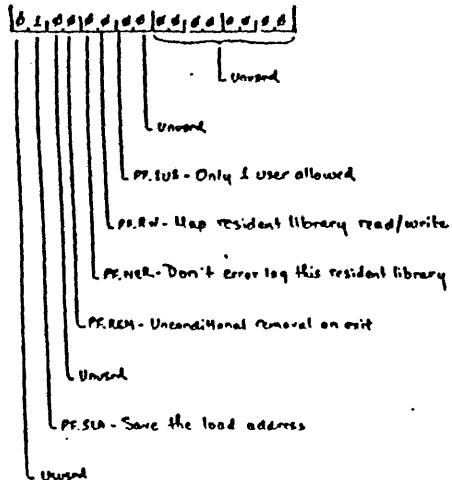 Ø 1 Ø Ø Ø Ø Ø Ø Ø Ø Ø Ø Ø Ø Ø Ø
Unused
Unused
PF.1US - Only 1 user allowed
PF.RW - Map resident library read/write
PF.NER - Don't error log this resident library
PF.REM - Unconditional removal on exit
Unused
PF.SLA - Save the load address
Unused